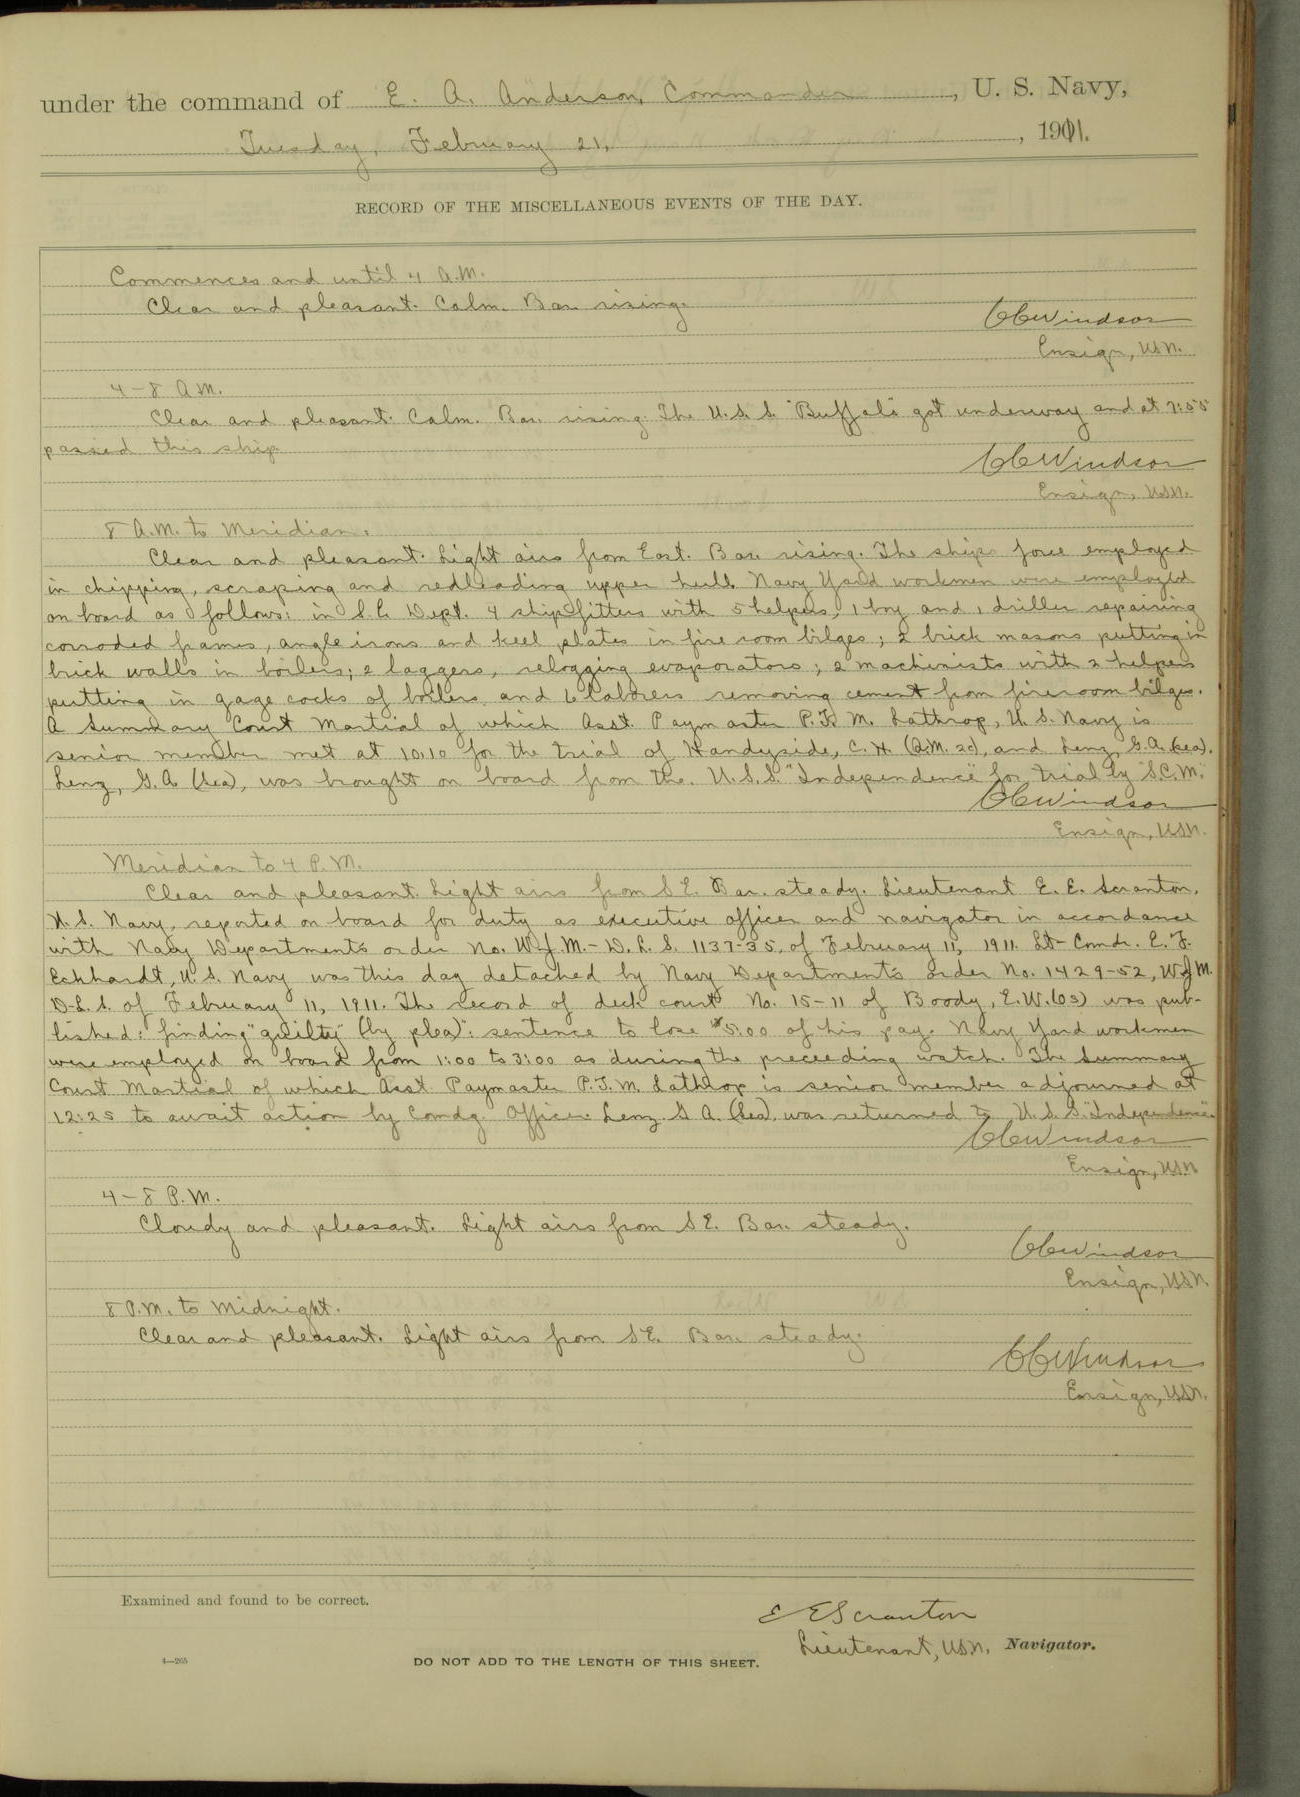 under the command of E. A. Anderson, Commander, U. S. Navy,
Tuesday, February 21, 1911.
RECORD OF THE MISCELLANEOUS EVENTS OF THE DAY.
Commences and until 4 A.M.
Clear and pleasant. Calm. Bar. rising.
CCWindsor
Ensign, USN.
4-8 A.M.
Clear and pleasant. Calm. Bar. rising. The U.S.S. "Buffalo" got underway and at 7:55
passed this ship.
CCWindsor
Ensign, USN.
8 A.M. to Meridian.
Clear and pleasant. Light airs from East. Bar. rising. The ships force employed
in chipping, scraping and redleading upper hull. Navy Yard workmen were employed
on board as follows: in S.E. Dept. 4 shipfitters with 5 helpers, 1 boy and 1 driller repairing
corroded frames, angle irons and keel plates in fire room bilges; 2 brick masons putting in
brick walls in boilers; 2 laggers, relogging evaporators; 2 machinists with 2 helpers
putting in gage cocks of boilers and 6 laborers removing cement from fireroom bilges.
A Summary Court Martial of which Asst. Paymaster P.T.M. Lathrop, U.S. Navy is
senior member met at 10.10 for the trial of Handyside, C.H. (Q.M. 2c), and Lenz, G.A. (sea).
Lenz, G.A (Sea), was brought on board from the U.S.S. "Independence" for trial by "S.C.M."
CCWindsor
Ensign, USN.
Meridian to 4 P.M.
Clear and pleasant. Light airs from SE. Bar. steady. Lieutenant E. E. Scranton,
U.S. Navy, reported on board for duty as executive officer and navigator in accordance
with Navy Departments order No. W.J.M.-D.L.S. 1137-35, of February 11, 1911. Lt-Comdr. E. F.
Eckhardt, U.S. Navy was this day detached by Navy Departments order No. 1429-52, WJM.
D-L.S. of February 11, 1911. The record of deck court No. 15-11 of Boody, E.W. (OS) was pub-
lished: finding "guilty" (by plea)": sentence to lose $5:00 of his pay. Navy Yard workmen
were employed on board from 1:00 to 3:00 as during the preceeding watch. The Summary
Court Martial of which Asst. Paymaster P.T.M. Lathrop is senior member adjourned at
12:25 to await action by Comdg. Officer. Lenz G A. (Sea). was returned to U.S.S. "Independence".
CCWindsor
Ensign, USN
4-8 P.M.
Cloudy and pleasant. Light airs from SE. Bar. steady.
CCWindsor
Ensign, USN.
8 P.M. to Midnight.
Clear and pleasant. Light airs from SE. Bar. steady.
CCWindsor
Ensign, USN.
Examined and found to be correct.
E E Scranton
Lieutenant, USN. Navigator.
4—265
DO NOT ADD TO THE LENGTH OF THIS SHEET.